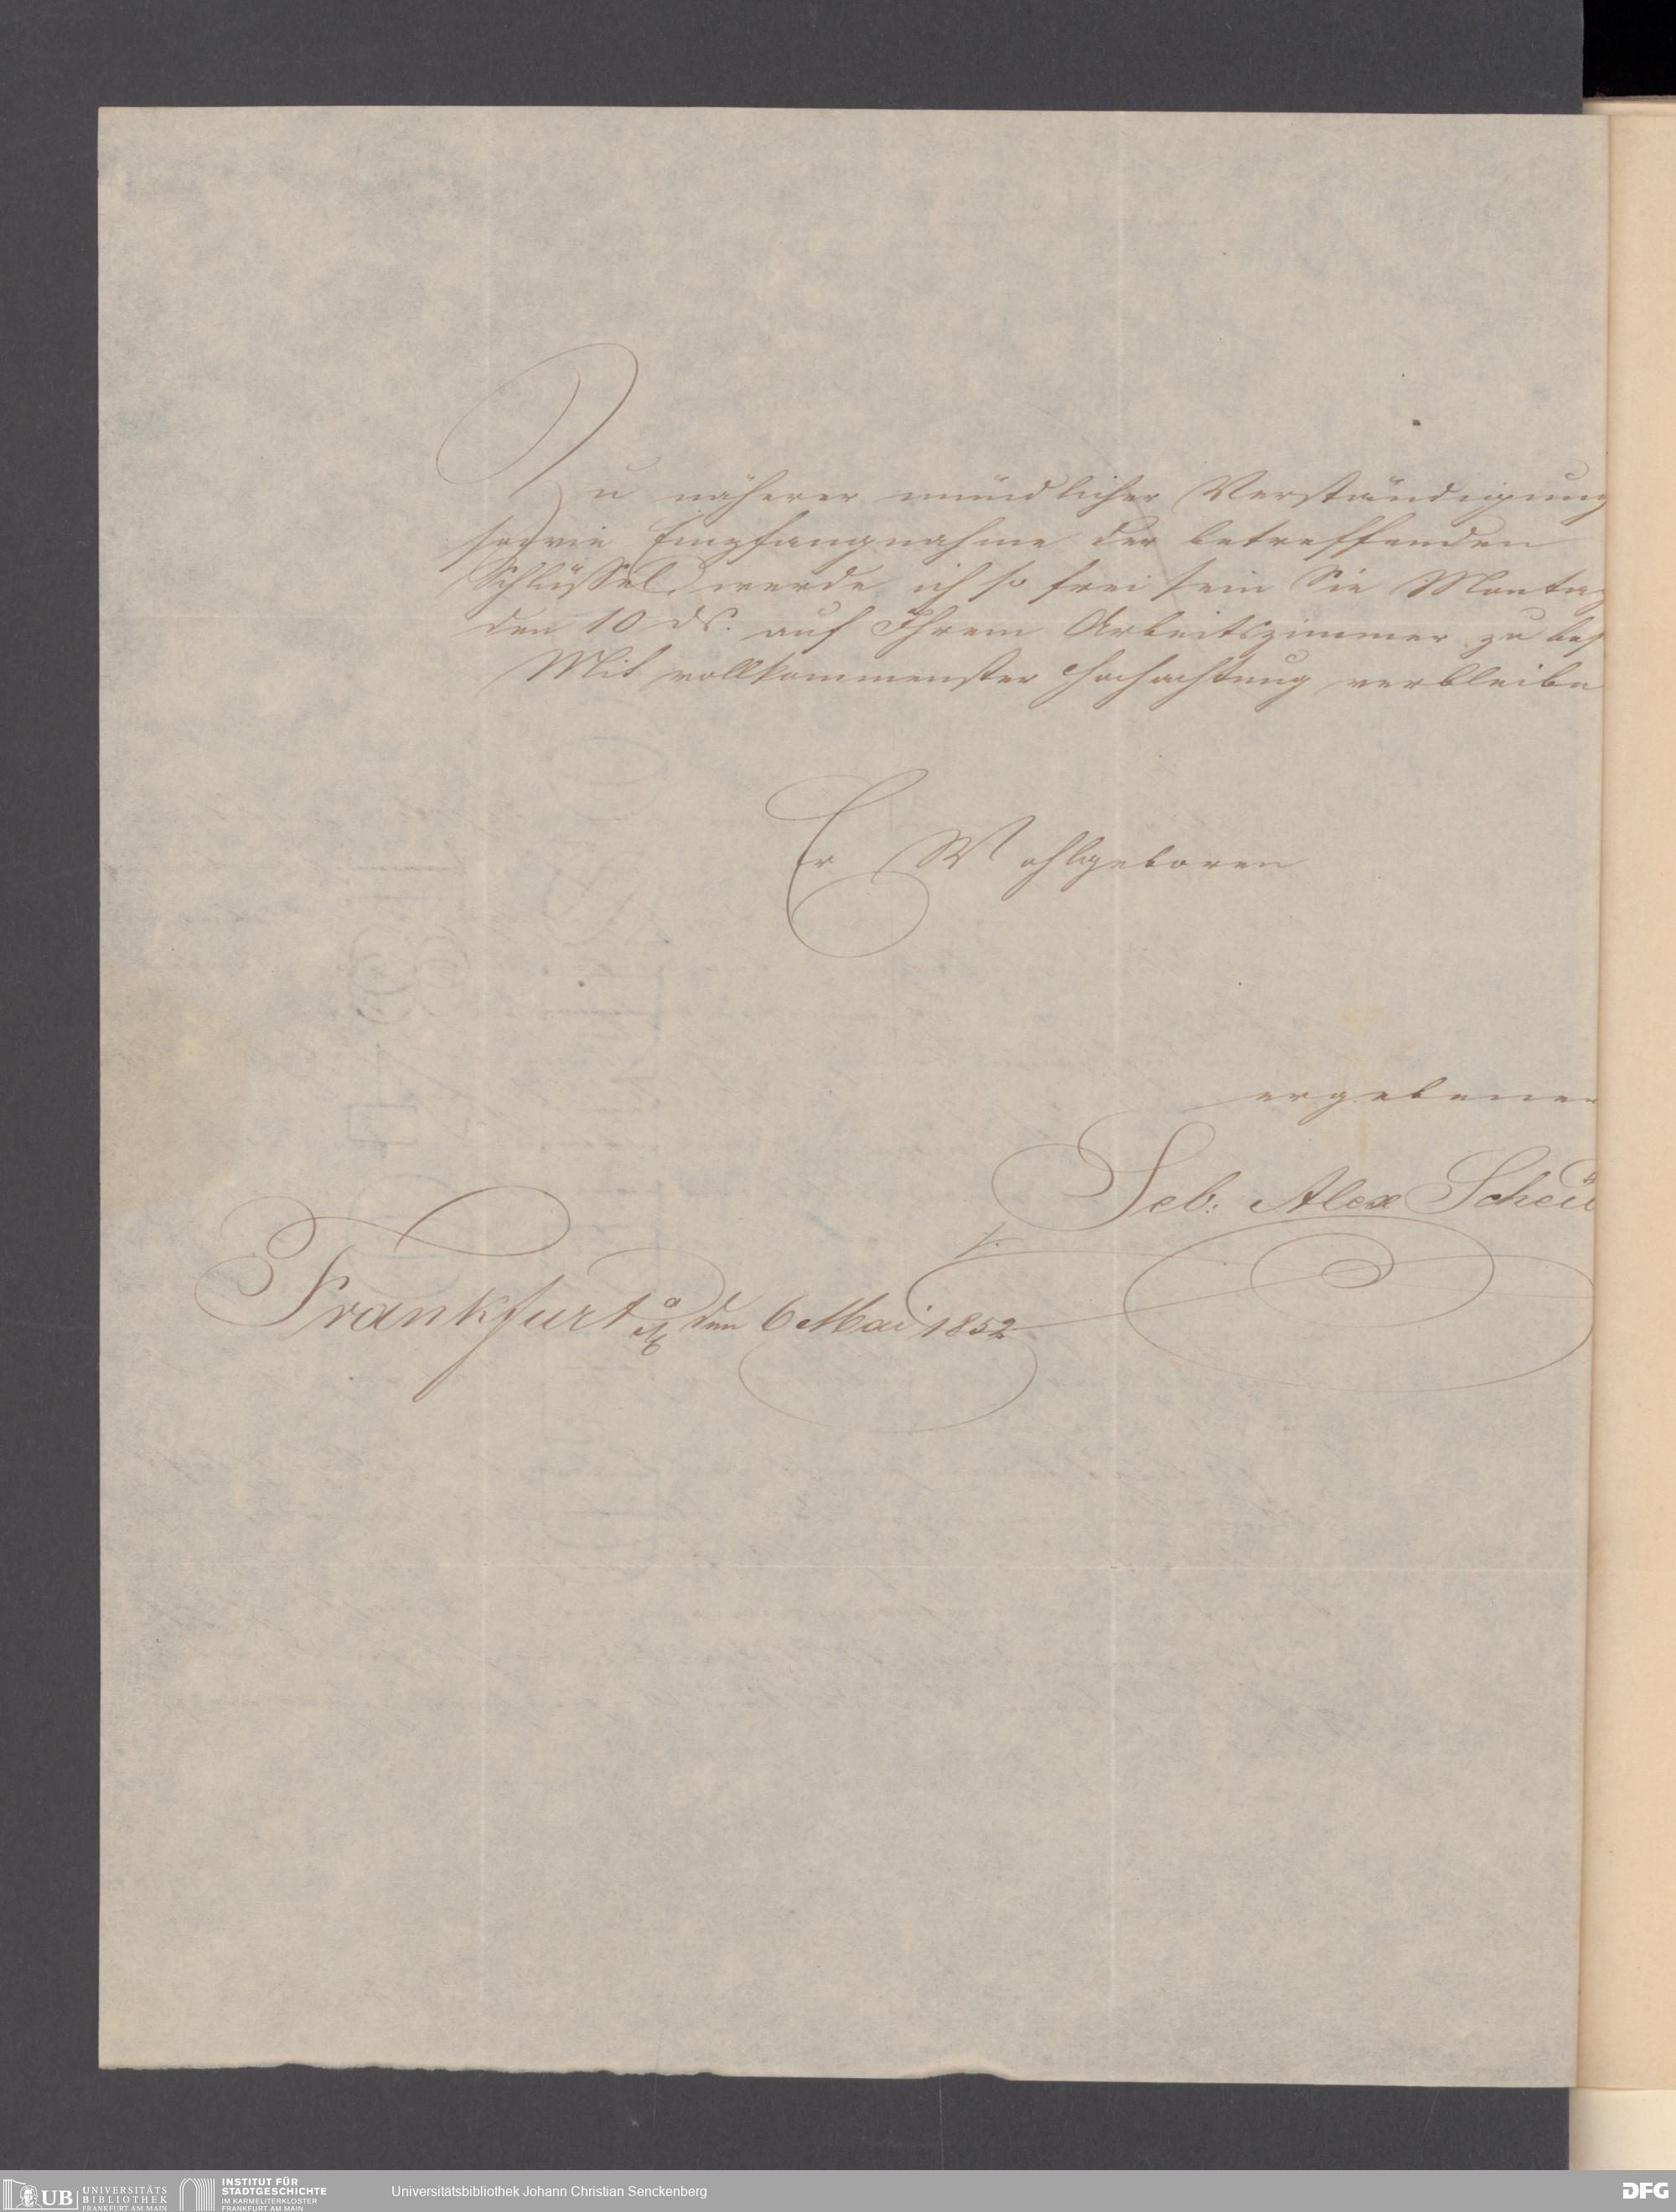 Zu näherer mündlicher Verständigung
sowie Empfangnahme der betreffenden
Schlüssel, werde ich so frei sein Sie Montag
den 10 ds. auf Ihrem Arbeitszimmer zu bes
Mit vollkommenster Hochachtung verbleibe
Er Wohlgeboren
ergebener
Seb: Alex Scheü
Frankfurt a/M den 6 Mai 1852
UB UNIVERSITÄTS
BIBLIOTHEK
FRANKFURT AM MAIN
INSTITUT FÜR
STADTGESCHICHTE
IM KARMELITERKLOSTER
FRANKFURT AM MAIN
Universitätsbibliothek Johann Christian Senckenberg
DFG